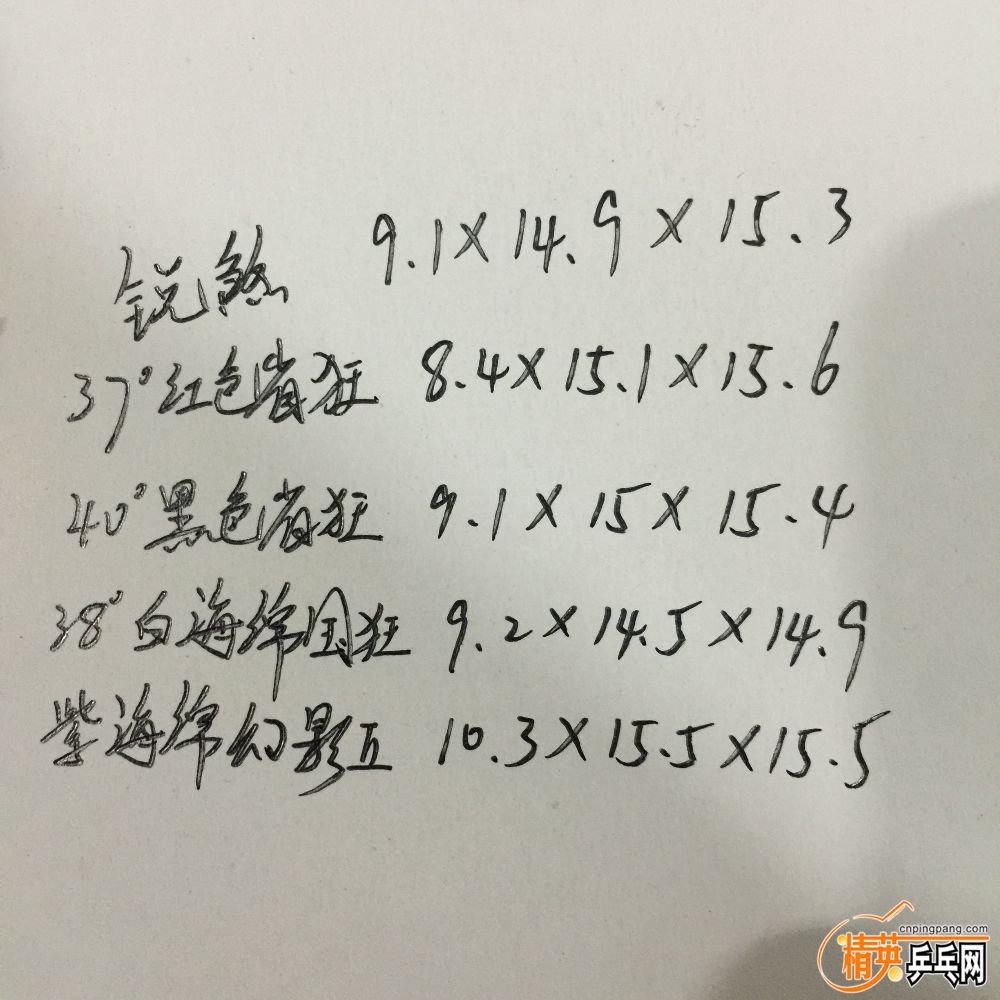 锐煞 9.1×14.9×15.3
37°红色省狂 8.4×15.1×15.6
40°黑色省狂 9.1×15×15.4
38°白海绵国狂 9.2×14.5×14.9
紫海绵幻影五 10.3×15.5×15.5
cnpingpang.com
精英乒乓网